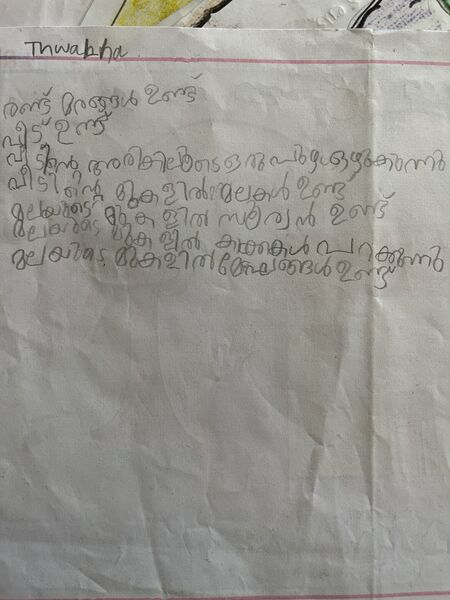 Thwabha
രണ്ട് മരങ്ങൾ ഉണ്ട്
വീട് ഉണ്ട്
വീടിൻ്റെ അരികിലൂടെ ഒരു പുഴ ഒഴുകുന്നു
വീടിൻ്റെ മുകളിൽ മലകൾ ഉണ്ട്
മലയുടെ മുകളിൽ സൂര്യൻ ഉണ്ട്
മലയുടെ മുകളിൽ കാക്കകൾ പറക്കുന്നു
മലയുടെ മുകളിൽ മേഘങ്ങൾ ഉണ്ട്